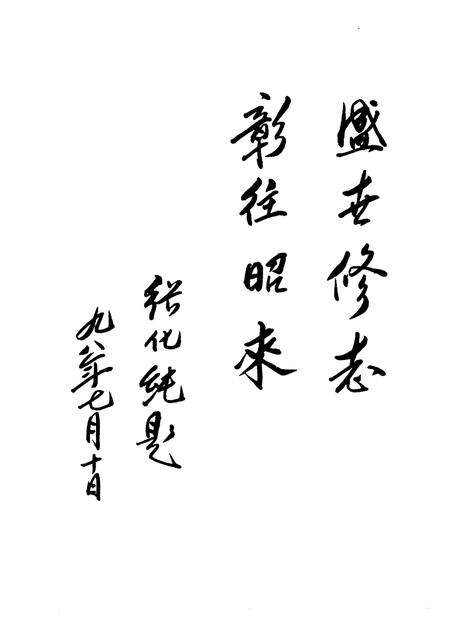 盛世修志
彰往昭來
化纯题
九八年七月十日